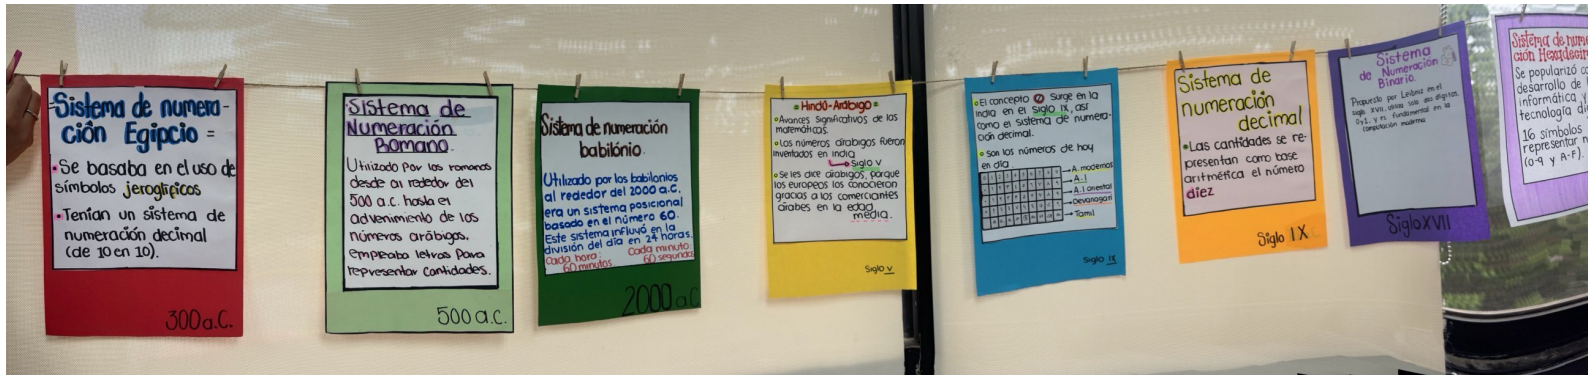 Sistema de numera-
ción Egipcio =
Se basaba en el uso de
símbolos jeroglíficos
Tenían un sistema de
numeración decimal
(de 10 en 10).
300 a.C.
Sistema de
Numeración
Romano.
Utilizado por los romanos
desde al rededor del
500 a.c. hasta el
advenimiento de los
números arábigos.
empleaba letras para
representar cantidades.
500 a.C.
Sistema de numeración
babilónio.
Utilizado por los babilonios
al rededor del 2000 a.C.
era un sistema posicional
basado en el número 60.
Este sistema influyó en la
división del día en 24 horas.
Cada hora: Cada minuto:
60 minutos 60 segundos
2000 a.C
= Hindú-Arábigo =
Avances significativos de las
matemáticas.
Los números arábigos fueron
inventados en india
Siglo v
Se les dice arábigos, porque
los europeos los conocieron
gracias a los comerciantes
árabes en la edad
media.
Siglo v
El concepto 0 surge en la
india en el siglo IX, así
como el sistema de numera-
ción decimal.
Son los números de hoy
en día
A. modernos
A. I
A. I oriental
Devanagari
Tamil
Siglo IX
Sistema de
numeración
decimal
Las cantidades se re-
presentan como base
aritmética el número
diez
Siglo IX
Sistema
de Numeración
Binario.
Propuesto por Leibniz en el
siglo XVII, utiliza solo dos dígitos,
0 y 1, y es fundamental en la
computación moderna
Siglo XVII
Sistema de nume
ción Hexadecim
Se popularizó co
desarrollo de
informática y
tecnología di
16 símbolos
representar n
(0-9 y A-F).